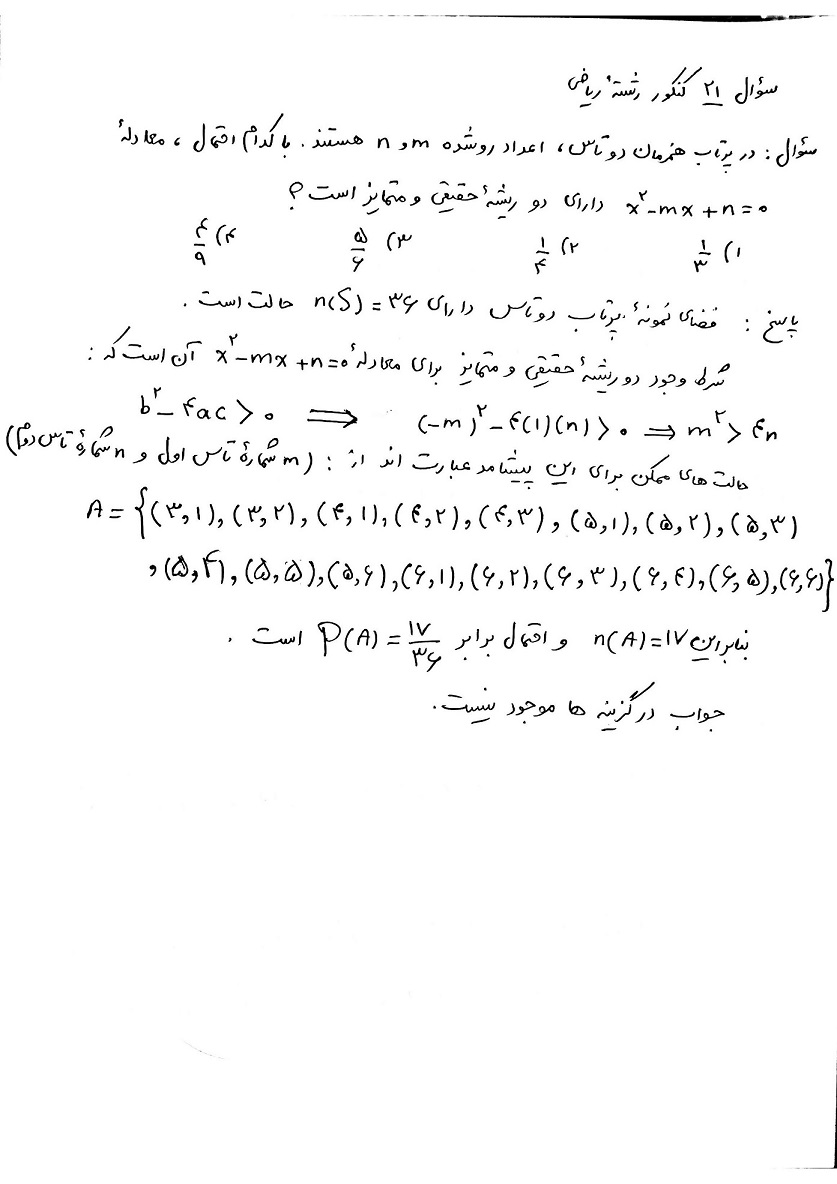 سؤال ۲۱ کنکور رشتهٔ ریاضی
سؤال : در پرتاب همزمان دو تاس، اعداد رو شده m و n هستند. با کدام احتمال ، معادلهٔ
x²-mx+n=۰ دارای دو ریشهٔ حقیقی و متمایز است ؟
۱) ۱/۳ ۲) ۱/۴ ۳) ۵/۶ ۴) ۴/۹
پاسخ : فضای نمونهٔ پرتاب دو تاس دارای n(S)=۳۶ حالت است .
شرط وجود دو ریشهٔ حقیقی و متمایز برای معادلهٔ x²-mx+n=۰ آن است که :
b²-۴ac>۰ ⟹ (-m)²-۴(۱)(n)>۰ ⟹ m²>۴n
حالت های ممکن برای این پیشامد عبارت اند از : (m شمارهٔ تاس اول و n شمارهٔ تاس دوم)
A={(۳,۱),(۳,۲),(۴,۱),(۴,۲),(۴,۳),(۵,۱),(۵,۲),(۵,۳)
,(۵,۴),(۵,۵),(۵,۶),(۶,۱),(۶,۲),(۶,۳),(۶,۴),(۶,۵),(۶,۶)}
بنابراین n(A)=۱۷ و احتمال برابر P(A)=۱۷/۳۶ است .
جواب در گزینه ها موجود نیست.